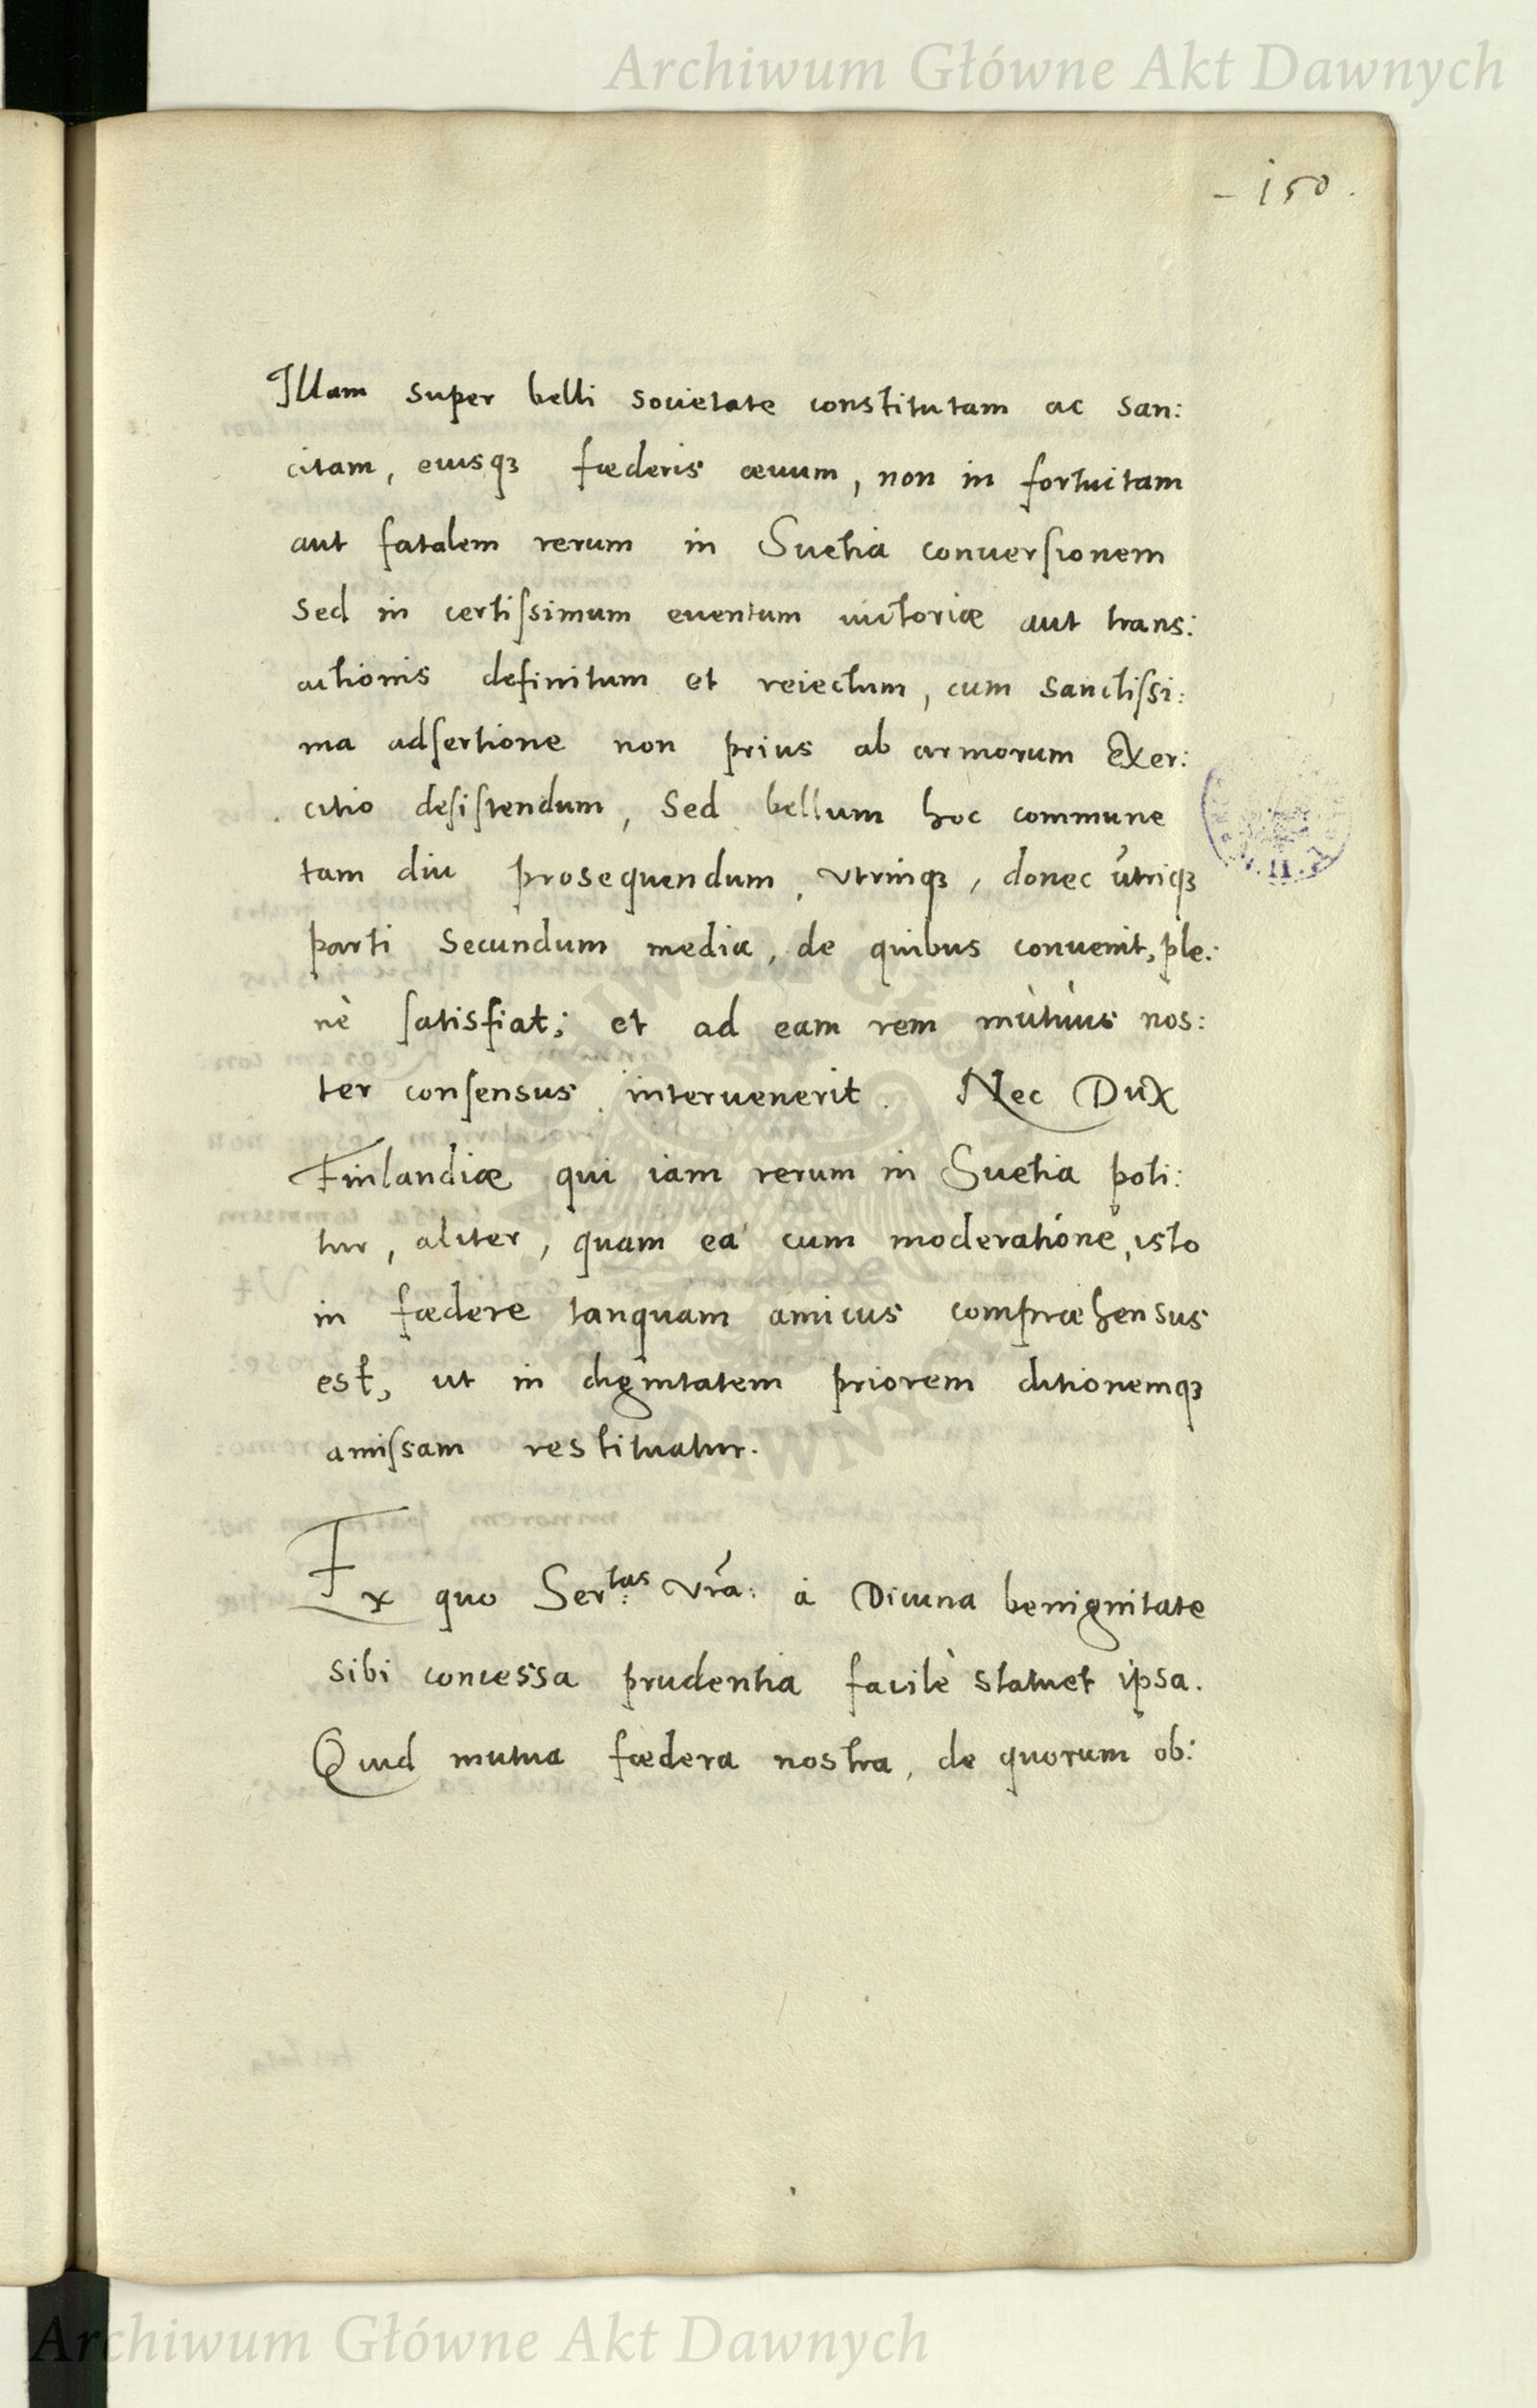 Archiwum Główne Akt Dawnych
- 150.
Illam super belli societate constitutam ac san:
citam, eiusqꝫ fœderis æuum, non in fortuitam
aut fatalem rerum in Suetia conuersionem
sed in certissimum euentum uictoriæ aut trans:
actionis definitum et reiectum, cum sanctissi:
ma adsertione non prius ab armorum exer:
citio desistendum, sed bellum hoc commune
tam diu prosequendum, vtrinqꝫ, donec útriqꝫ
parti secundum media, de quibus conuenit, ple:
nè satisfiat; et ad eam rem mùtùus nos:
ter consensus interuenerit. Nec Dux
Finlandiæ qui iam rerum in Suetia poti:
tur, aliter, quam eá cum moderatióne, isto
in fœdere tanquam amicus compræhensus
est, ut in dignitatem priorem ditionemqꝫ
amissam restituatur.
Ex quo Ser:tas Vra: à Diuina benignitate
sibi concessa prudentia facilè statuet ipsa.
Quid mutua fœdera nostra, de quorum ob:
Archiwum Główne Akt Dawnych